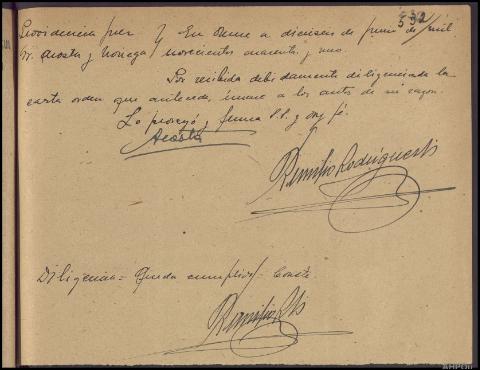 532
Providencia Juez } En Orense a dieciseis de Junio de mil
Sr. Acosta y Noriega } novecientos cuarenta y uno.
Por recibida debidamente diligenciada la
carta orden que antecede, únase a los autos de su razon.
Lo proveyó y firma S.S. y doy fé.
Acosta
Remigio Rodriguez
Diligencia = Queda cumplido = Conste.
AHPOU